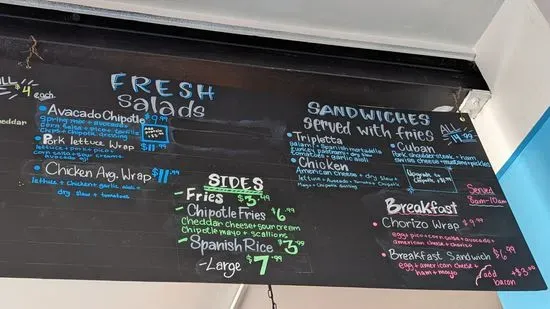 ALL
$4 each
cheddar
FRESH
Salads
• Avocado Chipotle $9.99
spring mix + avocado
corn salsa + pico + tortilla
chips + chipotle dressing
• Pork lettuce Wrap $11.99
lettuce + pork + pico +
corn salsa + sour cream +
avocado
• Chicken Avg. Wrap $11.99
lettuce + chicken + garlic aioli +
dry slaw + tomatoes
SIDES
- Fries $3.49
- Chipotle Fries $6.99
Cheddar cheese + sour cream
Chipotle mayo + scallions
- Spanish Rice $3.99
- Large $7.99
SANDWICHES
Served with fries
ALL
14.99
• Tripletta
salami + Spanish mortadella
turkey pastrami +
tomatoes + garlic aioli
• Chicken
American cheese + dry slaw +
lettuce + Avocado + Tomatoes + Chipotle
Mayo +
• Cuban
Pork shoulder steak + ham
swiss cheese + mustard + pickles
Upgrade to
Served
8am-10am
Breakfast
• Chorizo Wrap $9.99
egg + pico + corn salsa + avocado +
american cheese + chorizo
• Breakfast Sandwich $6.99
egg + american cheese +
ham + mayo
add bacon +$3.00